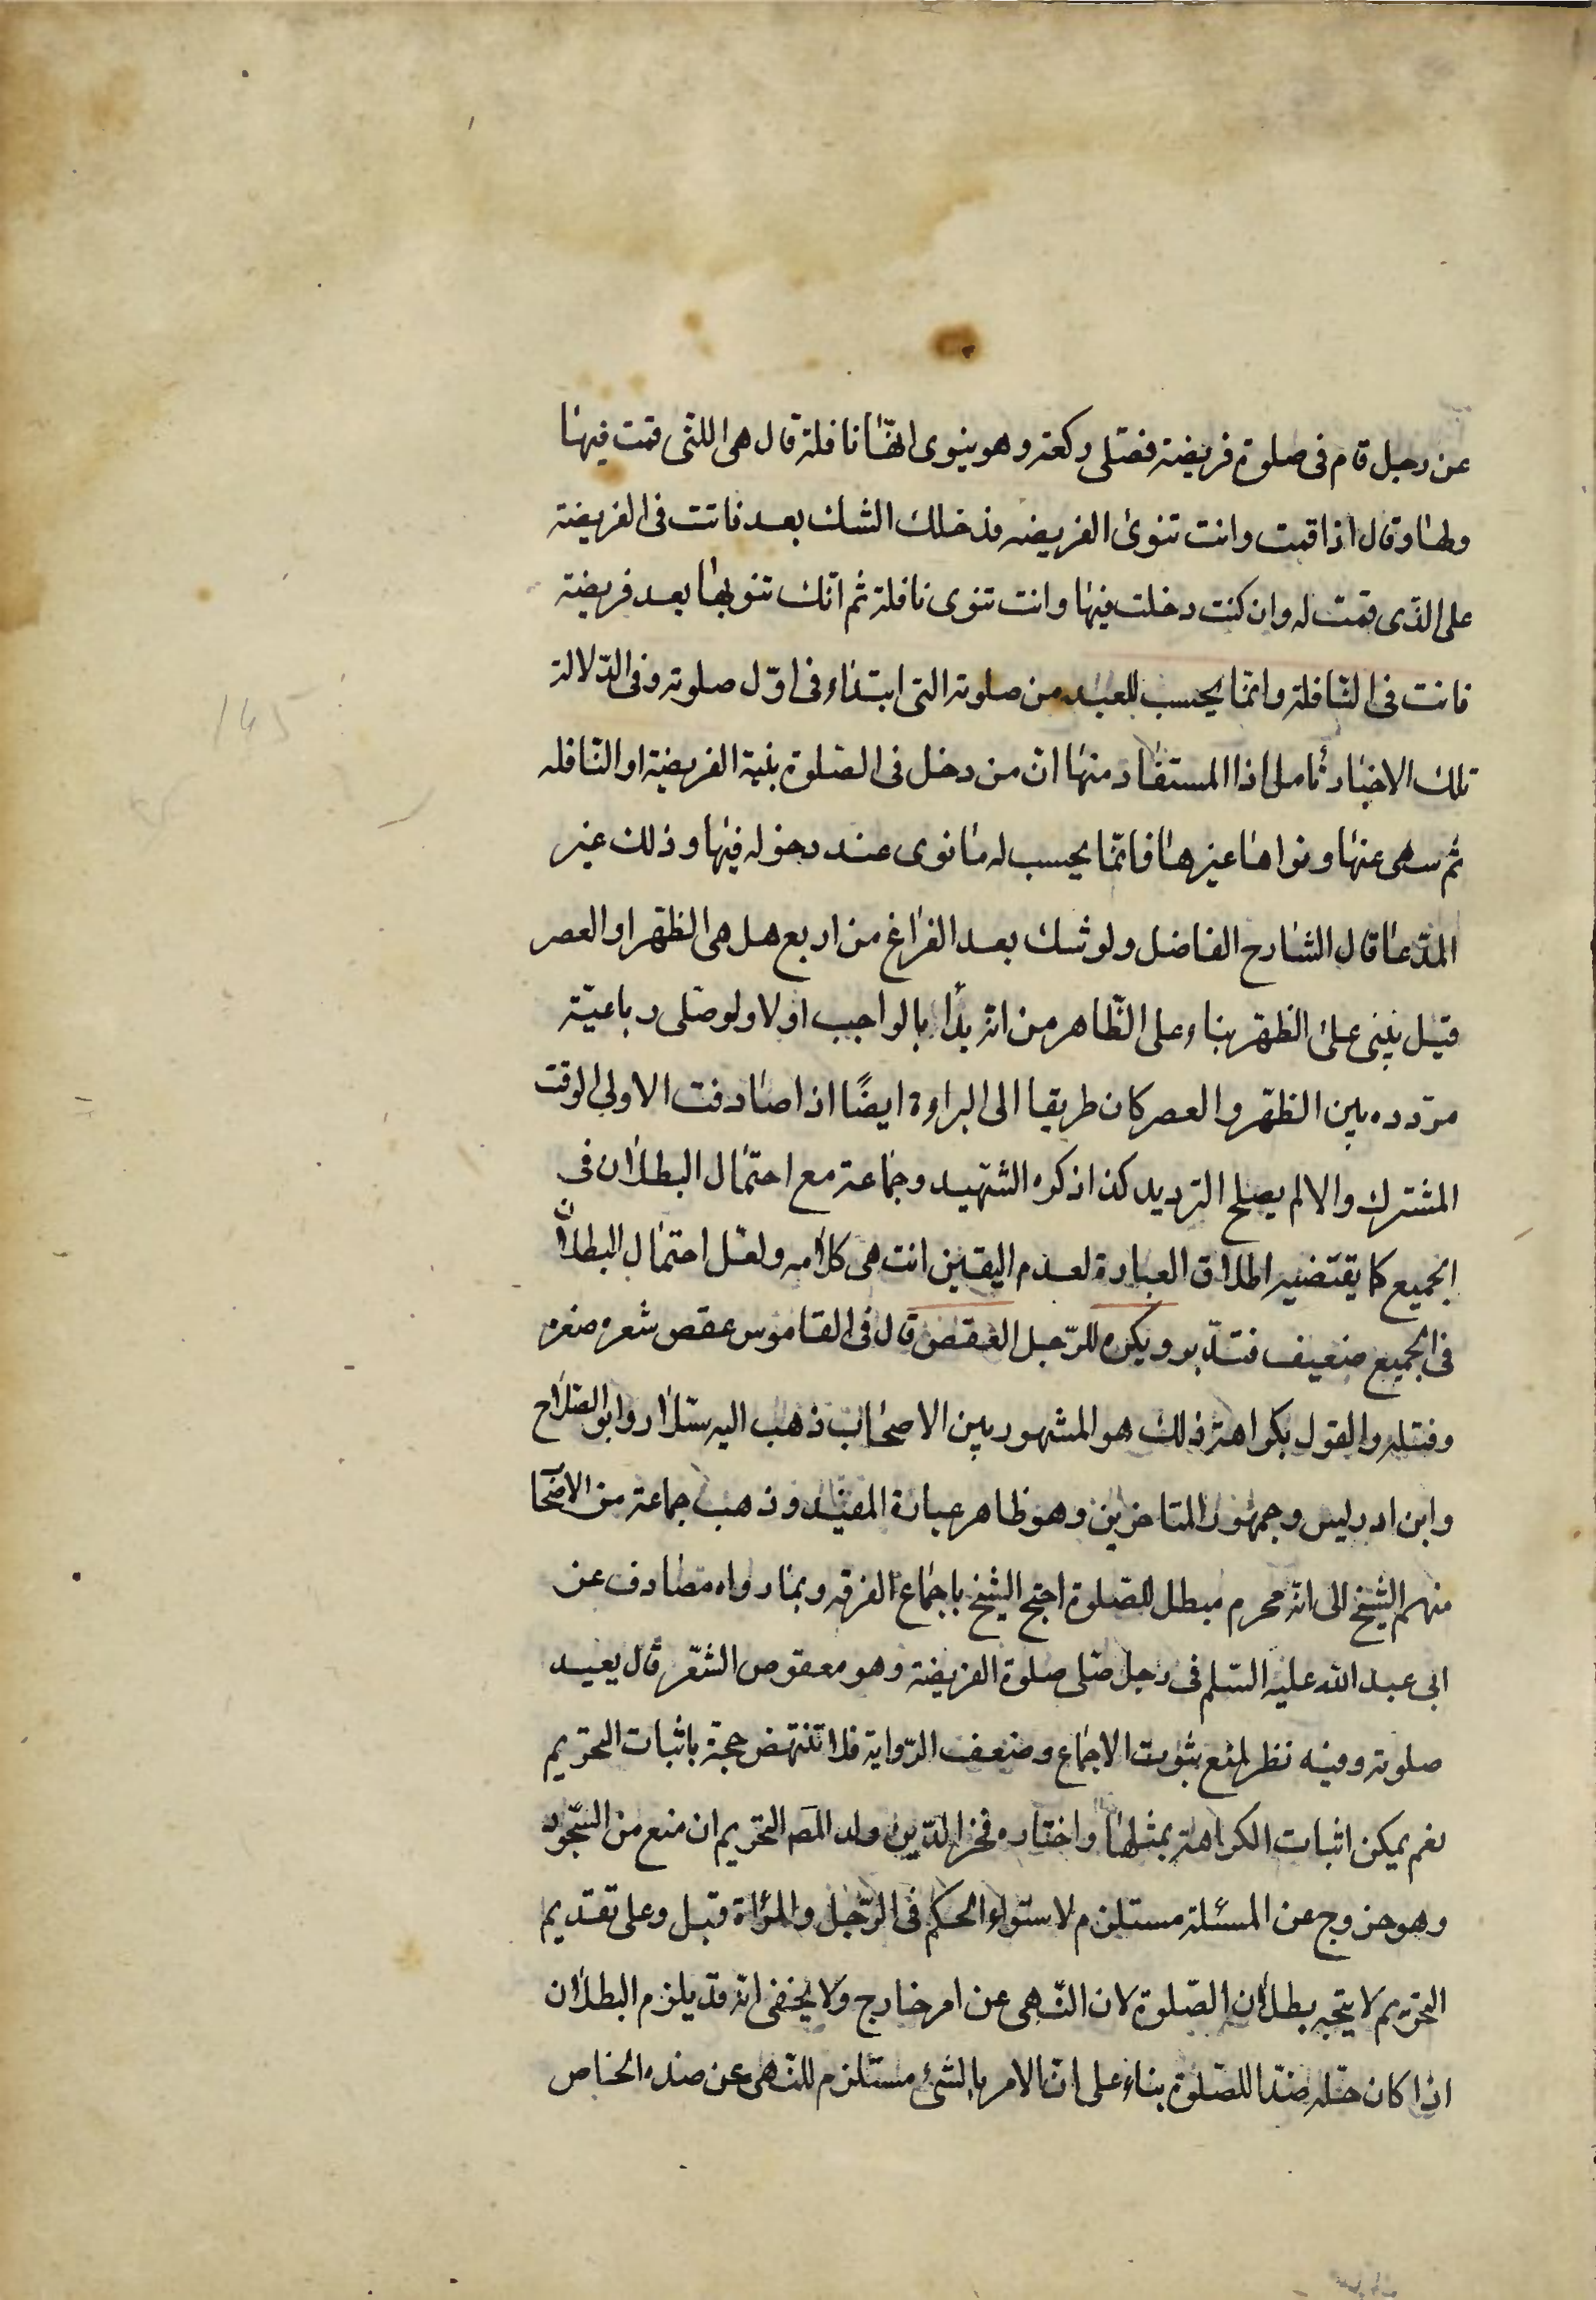 عن رجل قام فى صلوة فريضة فصّلى ركعة وهو ينوى انّها نافلة قال هى اللتى قمت فيها
ولها وقال اذا قمت وانت تنوى الفريضه فدخلك الشك بعد فانت فى الفريضة
على الذّى قمت له وان كنت دخلت فيها وانت تنوى نافلة ثم انّك تنويها بعد فريضة
فانت فى النّافلة وانّما يحسب للعبد من صلوته التى ابتداء فى اوّل صلوته وفى الدّلالة
تلك الاخبار تأمل اذا المستفاد منها ان من دخل فى الصّلوة بنية الفريضة او النّافله
ثم سهى عنها ونواها غيرها فانّما يحسب له ما نوى عند دخوله فيها وذلك غير
المدّعا قال الشارح الفاضل ولو شك بعد الفراغ من اربع هل هى الظّهر او العصر
قيل يبنى على الظّهر بناء على الظّاهر من انّه بدأ بالواجب اولا ولو صّلى رباعيّة
مرّدده بين الظّهر والعصر كان طريقا الى البراءة ايضًا اذا صادفت الاولى الوقت
المشترك والا لم يصلح الترديد كذا ذكره الشّهيد وجماعة مع احتمال البطلان فى
الجميع كما يقتضيه اطلاق العبارة لعدم اليقين انتهى كلامه ولعّل احتمال البطلان
فى الجميع ضعيف فتدّبر ويكره للرّجل العقص قال فى القاموس عقص شعره ضفره
وفتله والقول بكراهة ذلك هو المشهور بين الاصحاب ذهب اليه سّلار وابو الصّلاح
وابن ادريس وجمهور المتاخرين وهو ظاهر عبارة المفيد وذهب جماعة من الاصحا
منهم الشيخ الى انّه محرم مبطل للصّلوة احتج الشيخ باجماع الفرقه وبما رواه مصادف عن
ابى عبد الله عليه السّلم فى رجل صّلى صلوة الفريضة وهو معقوص الشّعر قال يعيد
صلوته وفيه نظر لمنع ثبوت الاجماع وضعف الرّواية فلا تنتهض حجة باثبات التحريم
نعم يمكن اثبات الكراهة بمثلها واختاره فخر الدّين ولد المص التحريم ان منع من السّجود
وهو خروج عن المسئلة مستلزم لاستواء الحكم فى الرّجل والمراة قيل وعلى تقديم
التحريم لا يتجه بطلان الصّلوة لان النّهى عن امر خارج ولا يخفى انّه قد يلزم البطلان
اذا كان حّله ضدّا للصّلوة بناء على انّ الامر بالشئ مستلزم للنّهى عن ضده الخاص